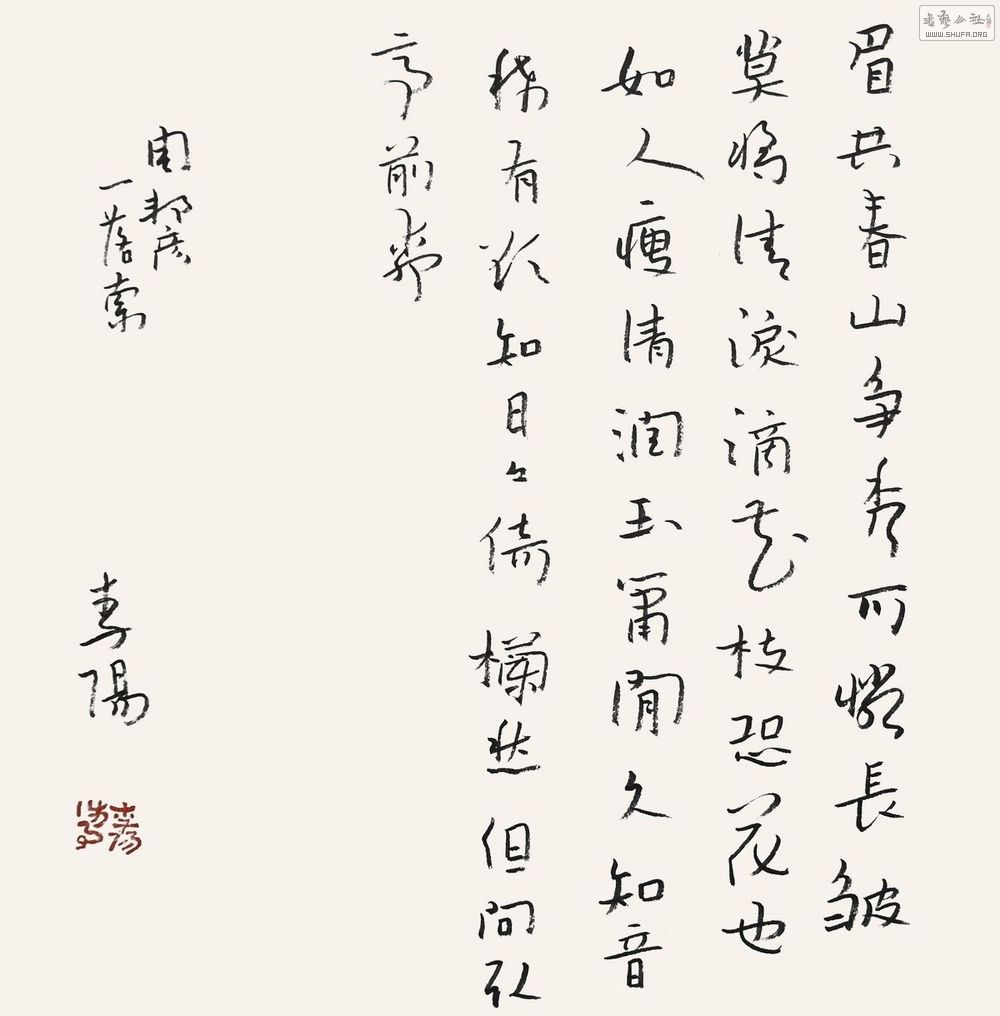 眉共春山争秀可憐長皱
莫將清淚滴花枝恐花也
如人瘦清潤玉簫閒久知音
稀有欲知日々倚欄愁但問取
亭前柳
周邦彦
一落索
李陽
書藝公社
WWW.SHUFA.ORG